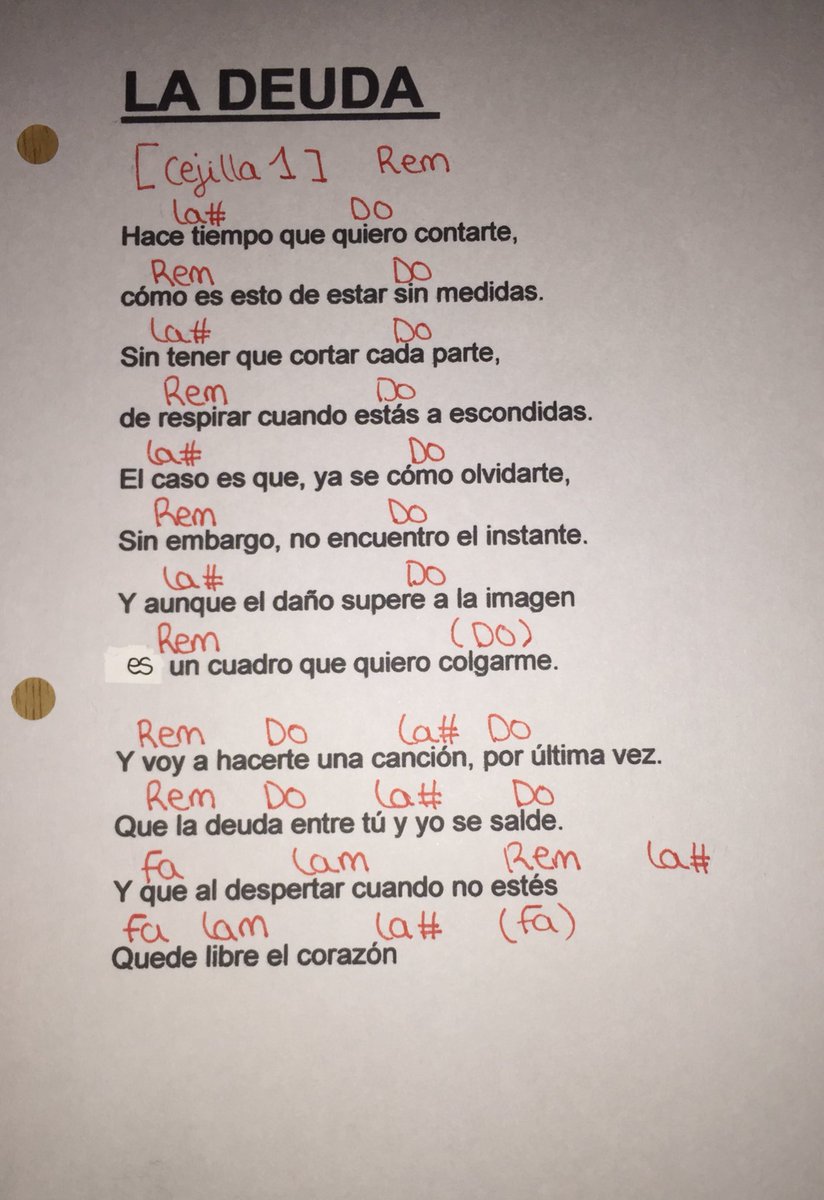 LA DEUDA
[Cejilla 1] Rem
La# Do
Hace tiempo que quiero contarte,
Rem Do
cómo es esto de estar sin medidas.
La# Do
Sin tener que cortar cada parte,
Rem Do
de respirar cuando estás a escondidas.
La# Do
El caso es que, ya se cómo olvidarte,
Rem Do
Sin embargo, no encuentro el instante.
La# Do
Y aunque el daño supere a la imagen
Rem (Do)
es un cuadro que quiero colgarme.
Rem Do La# Do
Y voy a hacerte una canción, por última vez.
Rem Do La# Do
Que la deuda entre tú y yo se salde.
Fa Lam Rem La#
Y que al despertar cuando no estés
Fa Lam La# (Fa)
Quede libre el corazón